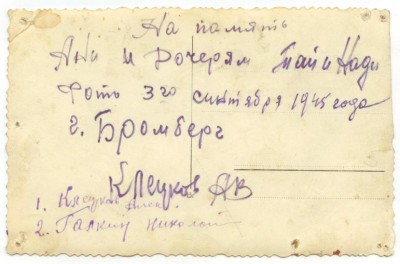 На память
Ани и Дочерям Таи и Нади
Фото 3го сентября 1945 года
г. Бромберг
Клецков АВ
1. Клецков
2. Галкин Николай